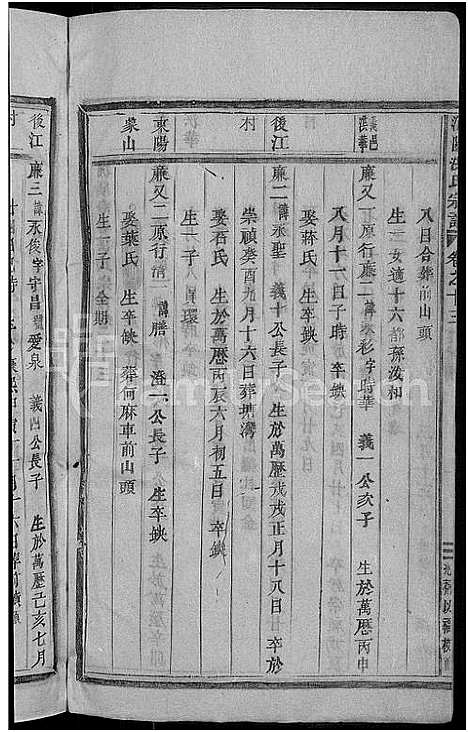 宗譜 卷之十三
八日合葬前山頭
生一女適十六都孫浚和
廉又一原行廉二 諱彩字時華 義一公次子 生於萬歷丙申
八月十一日子時 卒缺
娶蔣氏 生卒缺
後江 廉二 諱永聖 義十公長子 生於萬歷戊戌正月十八日 卒於
村 崇禎癸酉九月十六日葬塘灣
娶呂氏 生於萬歷丙辰六月初五日 卒缺
生一子 環
東陽 廉又二原行清一 諱勝 澄一公長子 生卒缺
蒙山 娶葉氏 生卒缺 葬何麻車前山頭
生一子 全期
後江 廉三 諱永俊字守昌號愛泉 義四公長子 生於萬歷己亥七月
村